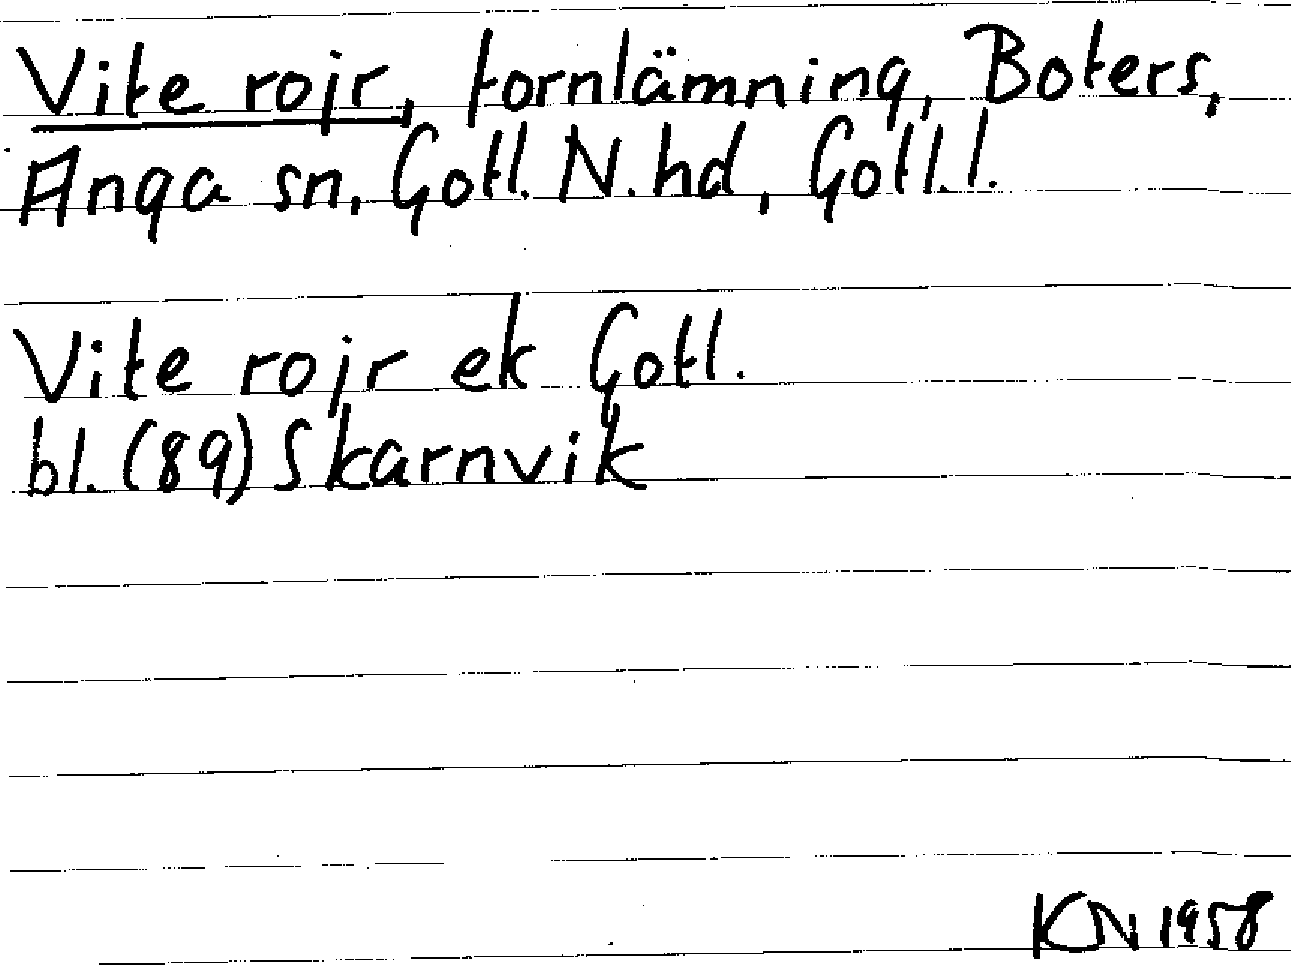 Vite rojr, fornlämning, Boters,
Anga sn, Gotl. N. hd, Gotl. l.
Vite rojr ek Gotl.
bl. (89) Skarnvik
KN 1958